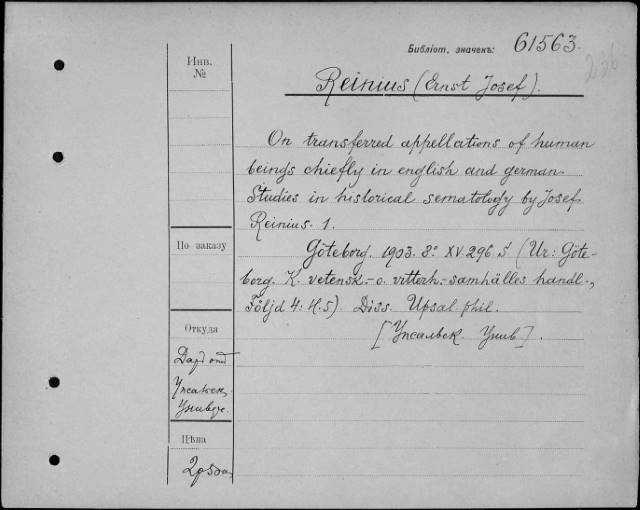 Библіот. значекъ: 61563.
Инв.
№
Reinius (Ernst Josef).
On transferred appellations of human
beings chiefly in english and german
Studies in historical sematology by Josef
Reinius. 1.
По заказу
Göteborg. 1903. 8° XV.296.S. (Ur: Göte-
borg. K. vetensk.- o. vitterh.-samhälles handl.,
Följd 4: H.5). Diss. Upsal. phil.
[Упсальск. Унив.].
Откуда
Даръ отъ
Упсальск.
Универс.
Цѣна